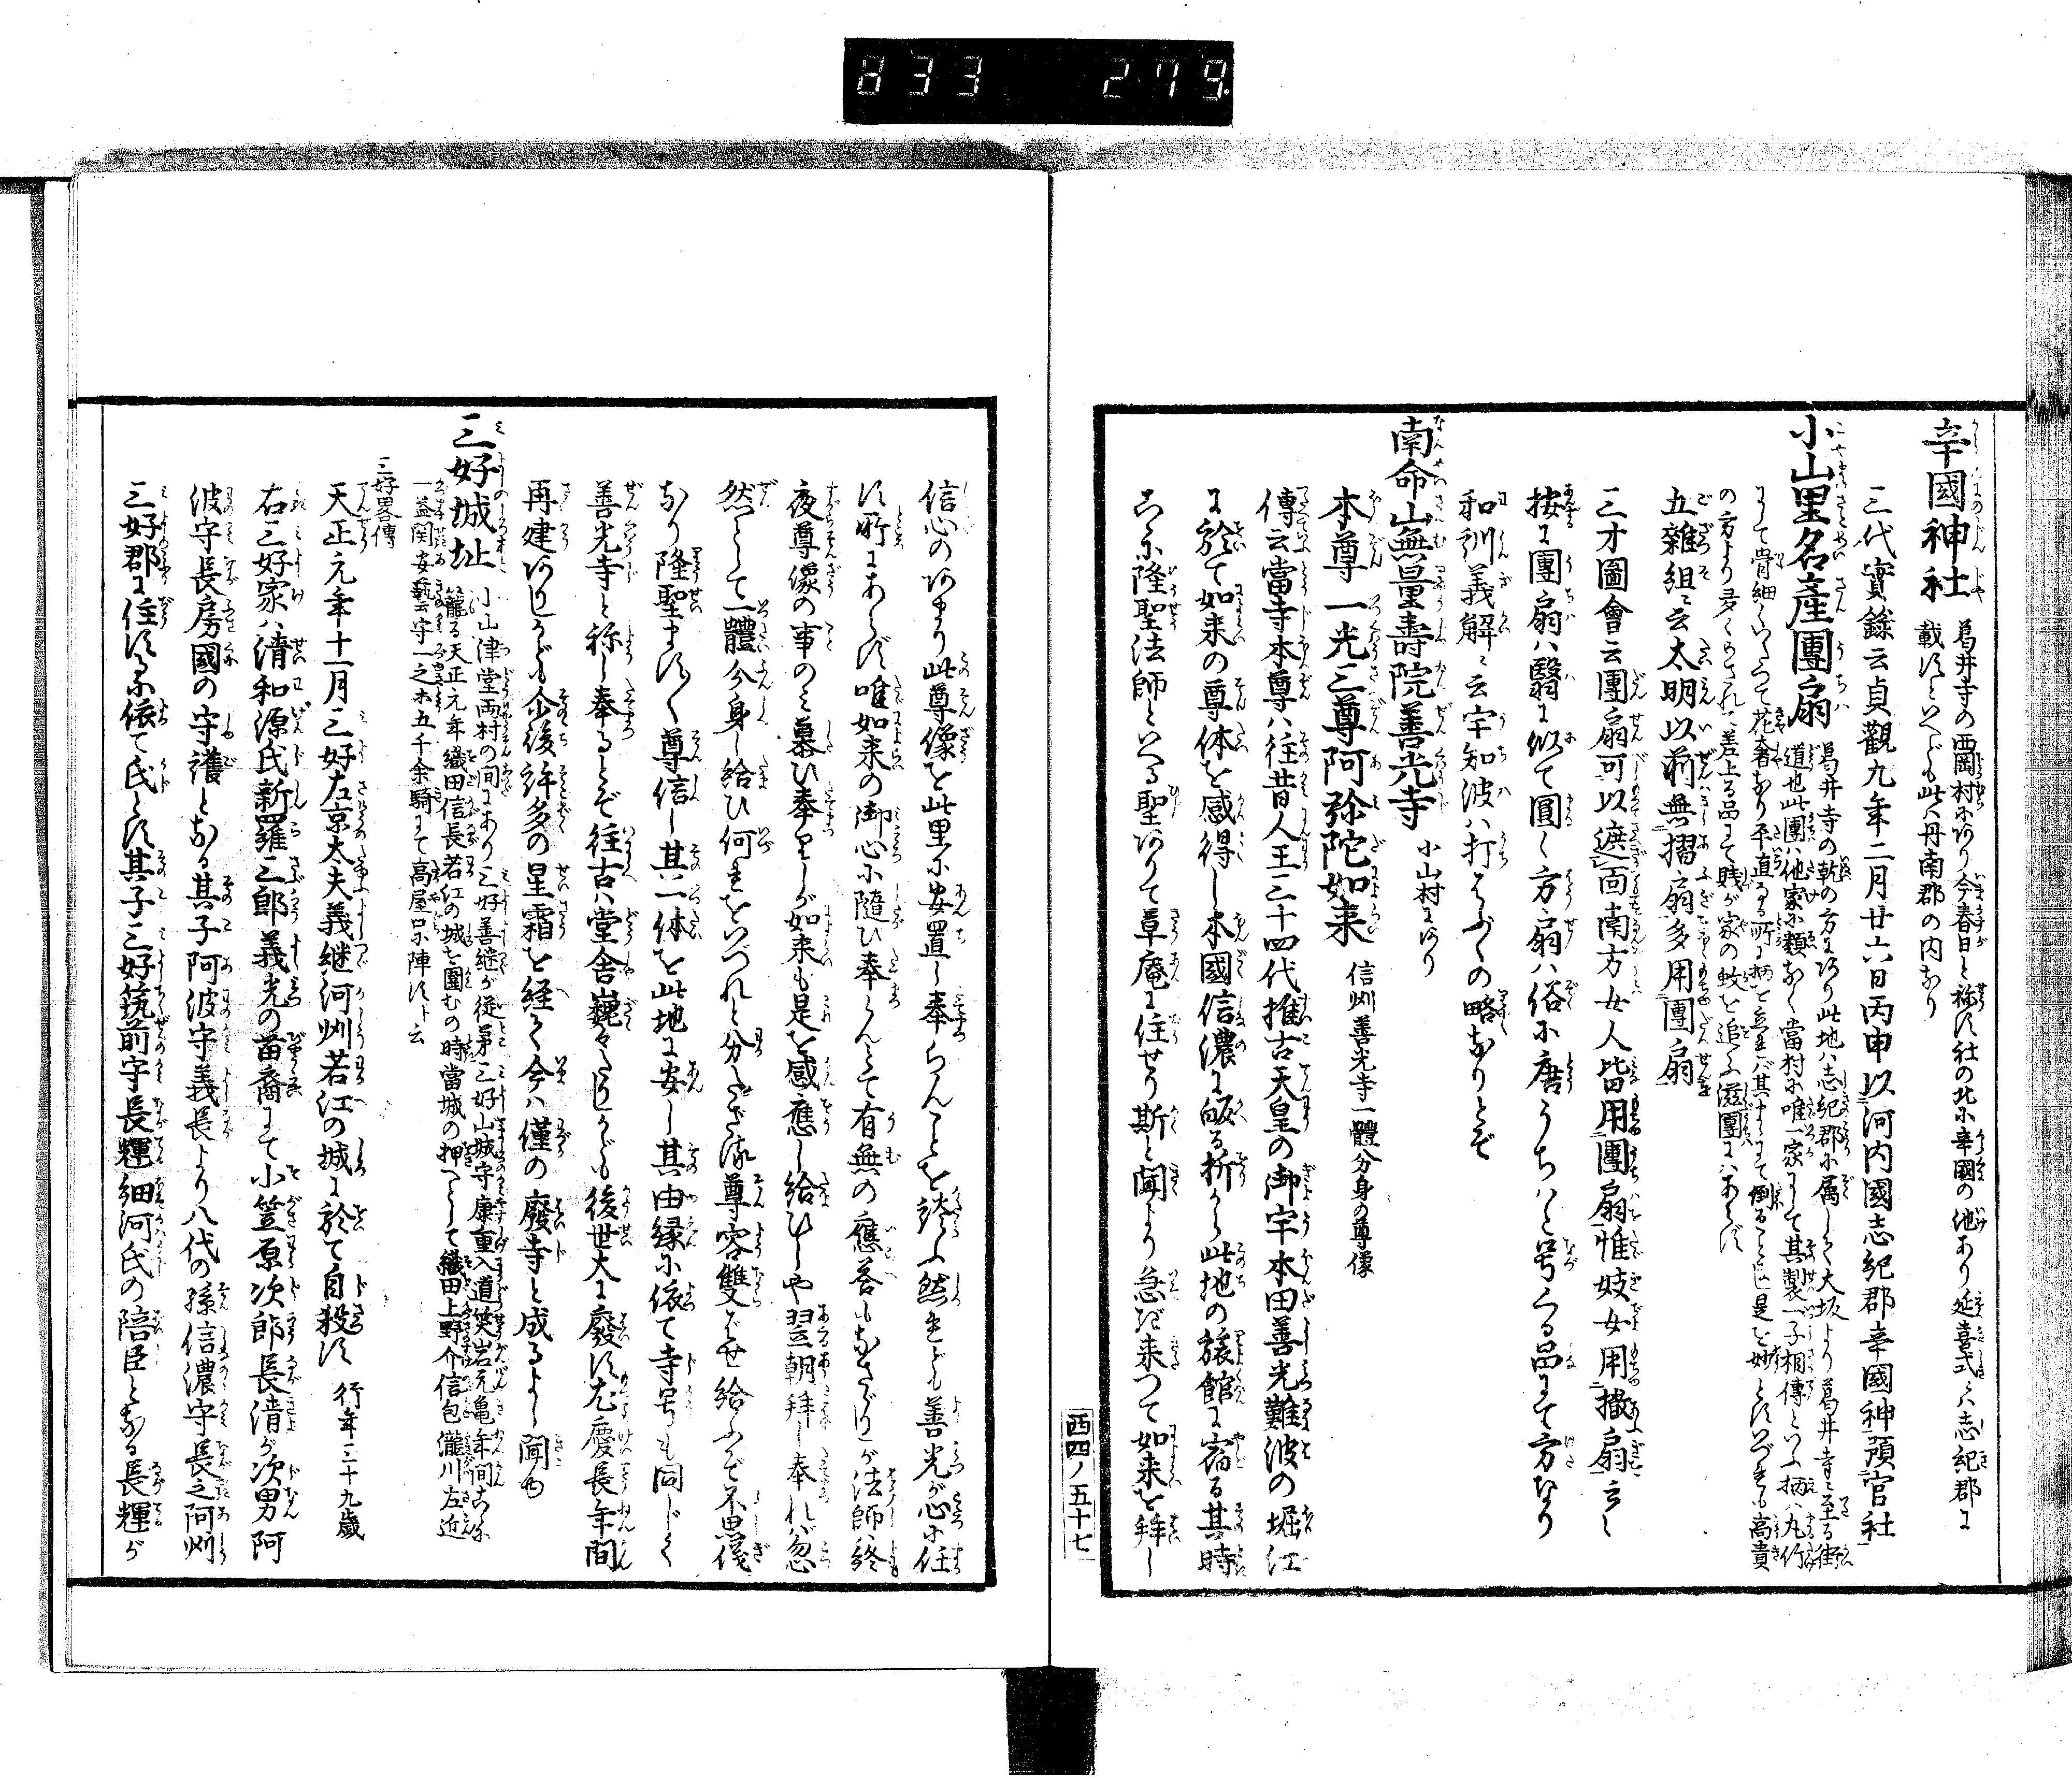 833 279
辛國神社 葛井寺の西岡村にあり今春日と称す社の北に辛國の池あり延喜式には志紀郡に
載すといへども此は丹南郡の内なり
三代實錄云貞觀九年二月廿六日丙申以河内國志紀郡辛國神預官社
小山里名產團扇 葛井寺の乾の方にあり此地は志紀郡に属しく大坂より葛井寺に至る街
道也此團は他家に類なく當村に唯一家にして其製一子相傳といふ柄は丸竹
にて骨細くいたつて花奢なり平直なる所に柄を立れば其中にて倒ることなし是を妙とすいづれも高貴
の方より多くめされば差上る品にて賤が家の蚊を追ふ滋團にはあらず
五雜組云太明以前無摺扇多用團扇
三才圖會云團扇可以遮面南方女人皆用團扇惟妓女用撒扇云々
按に團扇は翳に似て圓く方扇は俗に唐うちハと号くる品にて方なり
和訓義解云宇知波ハ打はぶくの略なりとぞ
南命山無量壽院善光寺 小山村にあり
本尊一光三尊阿弥陀如来 信州善光寺一體分身の尊像
傳云當寺本尊ハ往昔人王三十四代推古天皇の御宇本田善光難波の堀江
に於て如来の尊体を感得し本國信濃に皈る折から此地の旅館に宿る其時
こゝに隆聖法師といへる聖ありて草庵に住せり斯と聞より急ぎ来つて如来を拜し
西四ノ五十七
信心のあまり此尊像を此里に安置し奉らんことを談ふ然れども善光が心に任
す所にあらず唯如来の御心に隨ひ奉らんとて有無の應答もなさざりしが法師ハ終
夜尊像の事のミ慕ひ奉りしが如来も是を感應し給ひしや翌朝拜し奉れバ忽
然として一體分身し給ひ何れをいづれと分たざる尊容雙ばせ給ふぞ不思儀
なり隆聖ますく尊信し其一体を此地に安し其由縁に依て寺号も同じく
善光寺と称し奉るとぞ往古ハ堂舎巍々たりしかども後世大に廢す尤慶長年間
再建ありしかども企後許多の星霜を経て今ハ僅の廢寺と成るよし聞ゆ
三好城址 小山津堂両村の間にあり三好善継が従弟三好山城守康重入道笑岩元亀年間こゝに
籠る天正元年織田信長若江の城を圍むの時當城の押へとして織田上野介信包瀧川左近
一益関安藝守一之木五千余騎にて高屋口に陣すト云
三好畧傳
天正元年十一月三好左京太夫義継河州若江の城に於て自殺す 行年三十九歳
右三好家ハ清和源氏新羅三郎義光の苗裔にて小笠原次郎長清が次男阿
波守長房國の守護となる其子阿波守義長より八代の孫信濃守長之阿州
三好郡に住するに依て氏とす其子三好筑前守長輝細河氏の陪臣となる長輝が